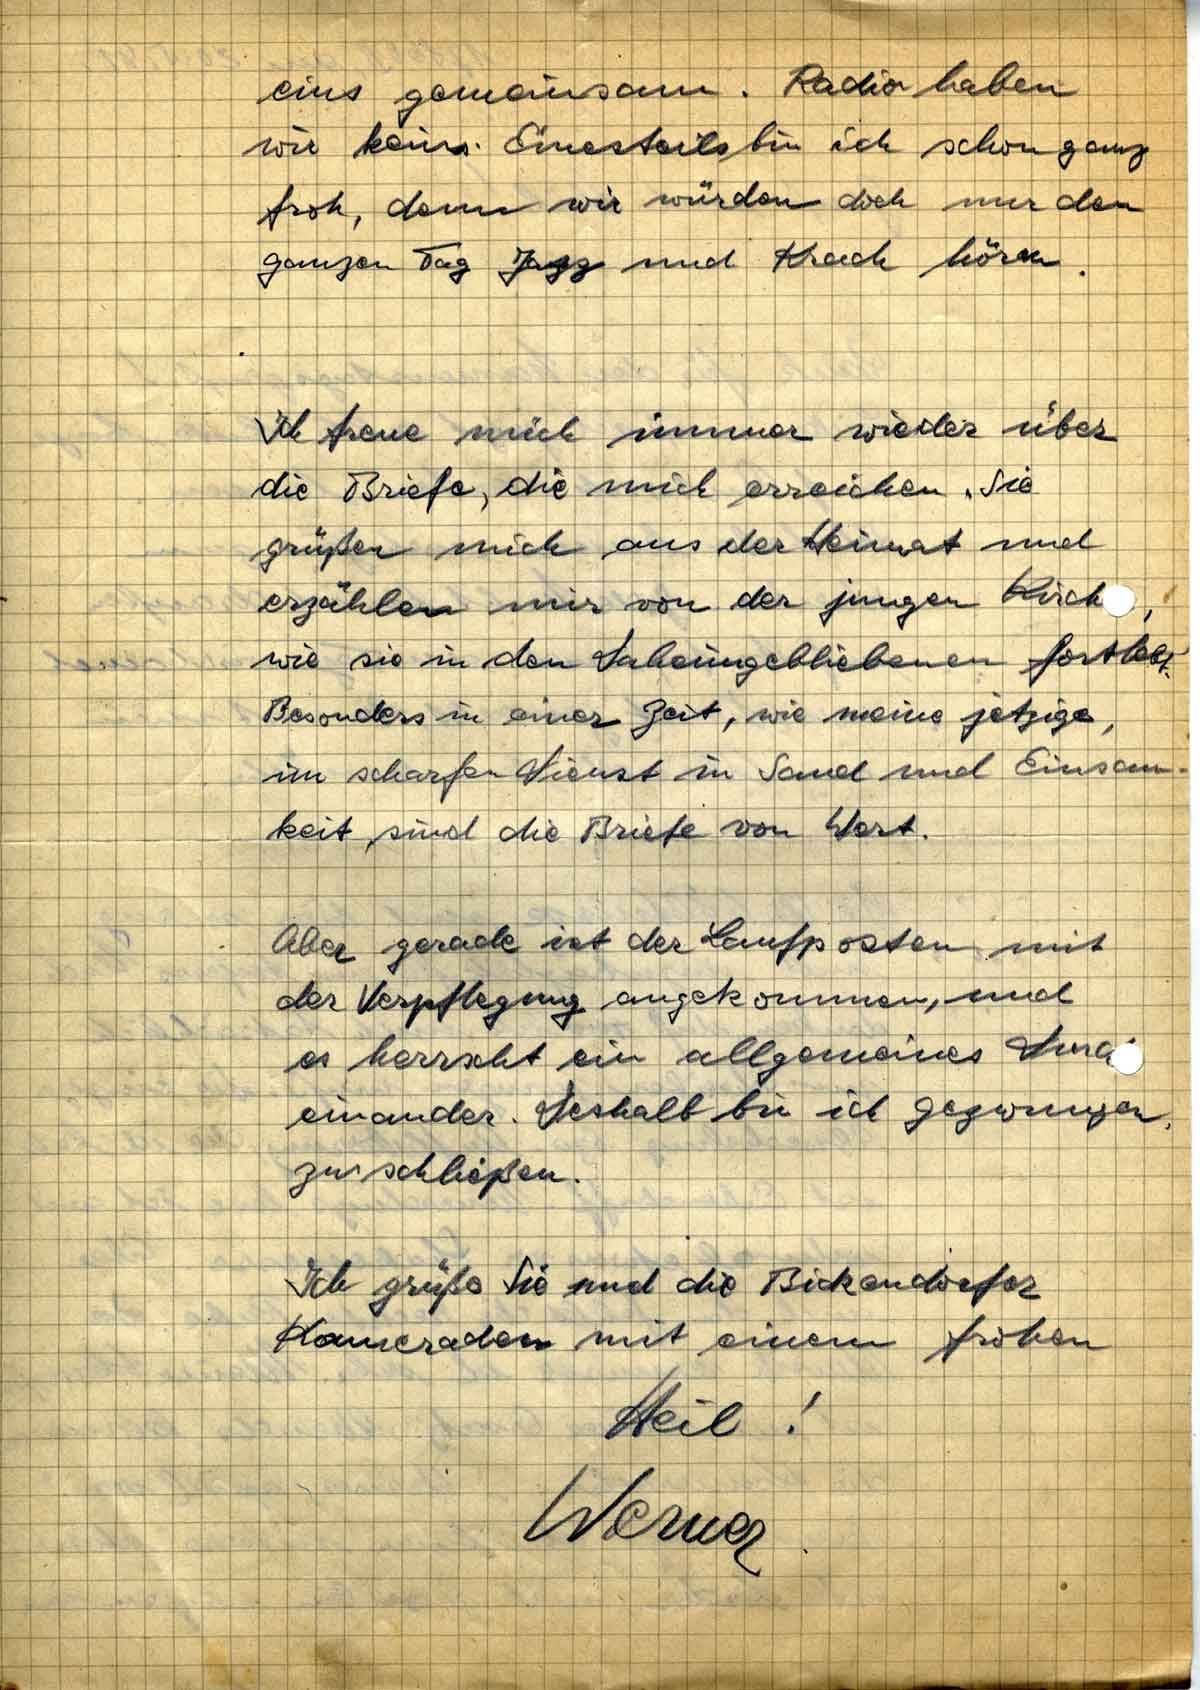 eins gemeinsam. Radio haben
wir keins. Einesteils bin ich schon ganz
froh, denn wir würden doch nur den
ganzen Tag Jazz und Krach hören.
Ich freue mich immer wieder über
die Briefe, die mich erreichen. Sie
grüßen mich aus der Heimat und
erzählen mir von der jungen Kirch,
wie sie in den Daheimgebliebenen fortlebt.
Besonders in einer Zeit, wie meine jetzige,
im scharfen Dienst in Sand und Einsam-
keit, sind die Briefe von Wert.
Aber gerade ist der Laufposten mit
der Verpflegung angekommen, und
es herrscht ein allgemeines Durc
einander. Deshalb bin ich gezwungen,
zu schließen.
Ich grüße Sie und die Bickendorfer
Kameraden mit einem frohen
Heil!
Werner.